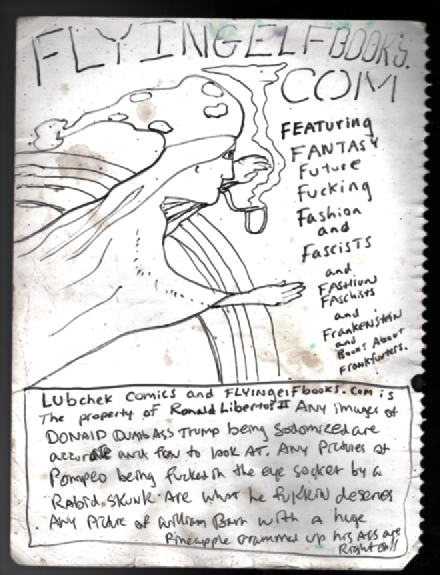 FLYINGELFBOOKS.
COM
FEATURING
FANTASY
Future
Fucking
Fashion
and
Fascists
and
FASHION
FASCHISTS
and
Frankenstein
and
Books About
Frankfurters.
Lubchek Comics and FLYINGelFbooks.com is
The property of Ronald Libertos II Any images of
DONALD DUMbASS Trump being Sodomized are
accurate and fun to look AT. Any Pictures of
Pompeo being fucked in the eye socket by a
Rabid skunk Are what he deserves
Any Picture of William Barr with a huge
Pineapple crammed up his ASS are
Right on!!